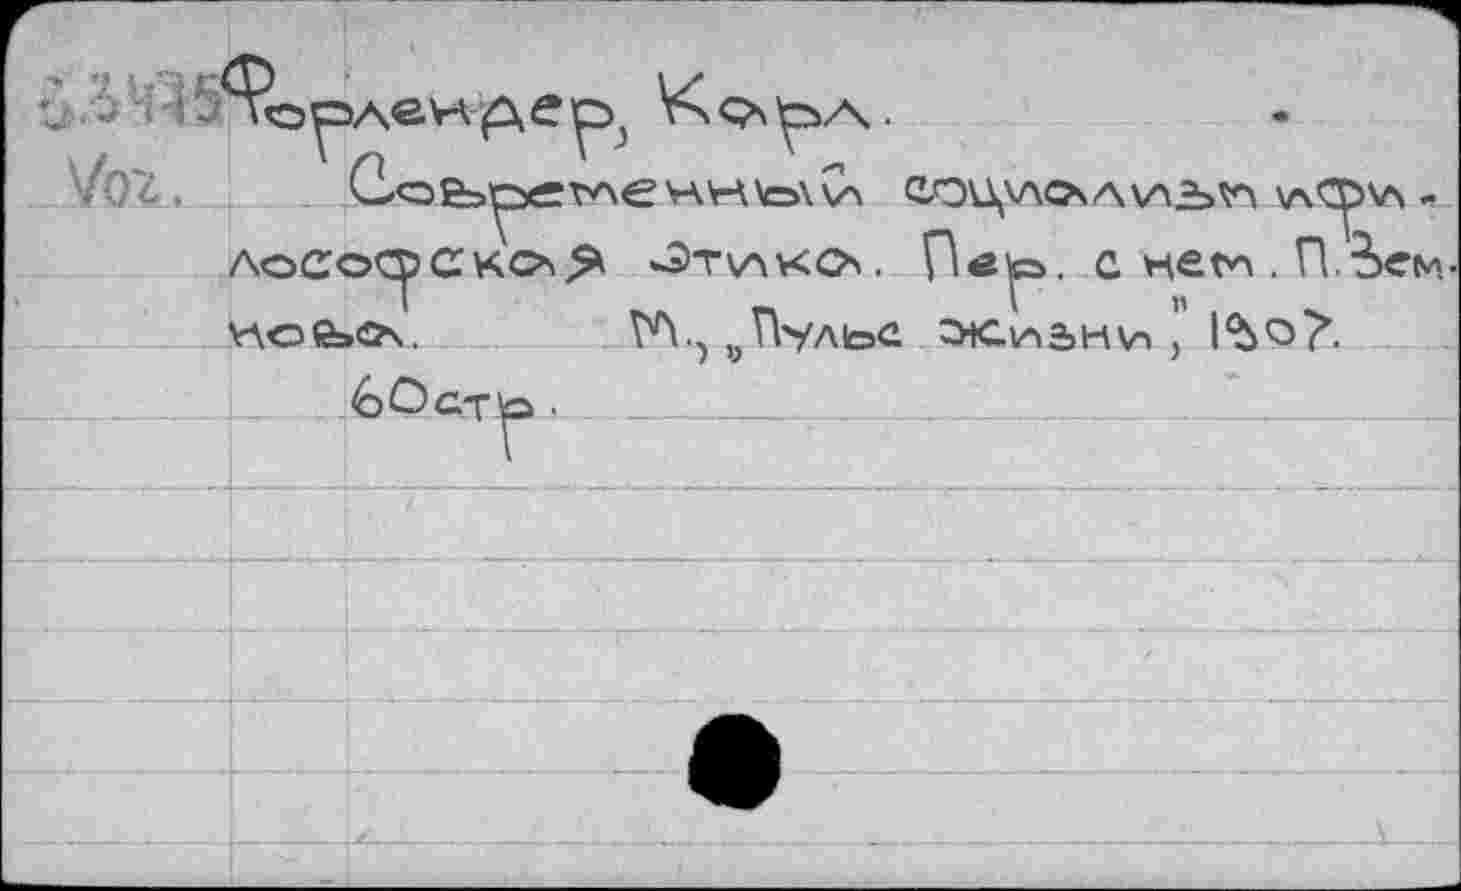 Форлендер, Карл.
Voz. Современный социализм и фи-
лософская этика. Пер. с нем. П. Зем-
новой. М., „Пульс жизни", 1907.
60 стр.